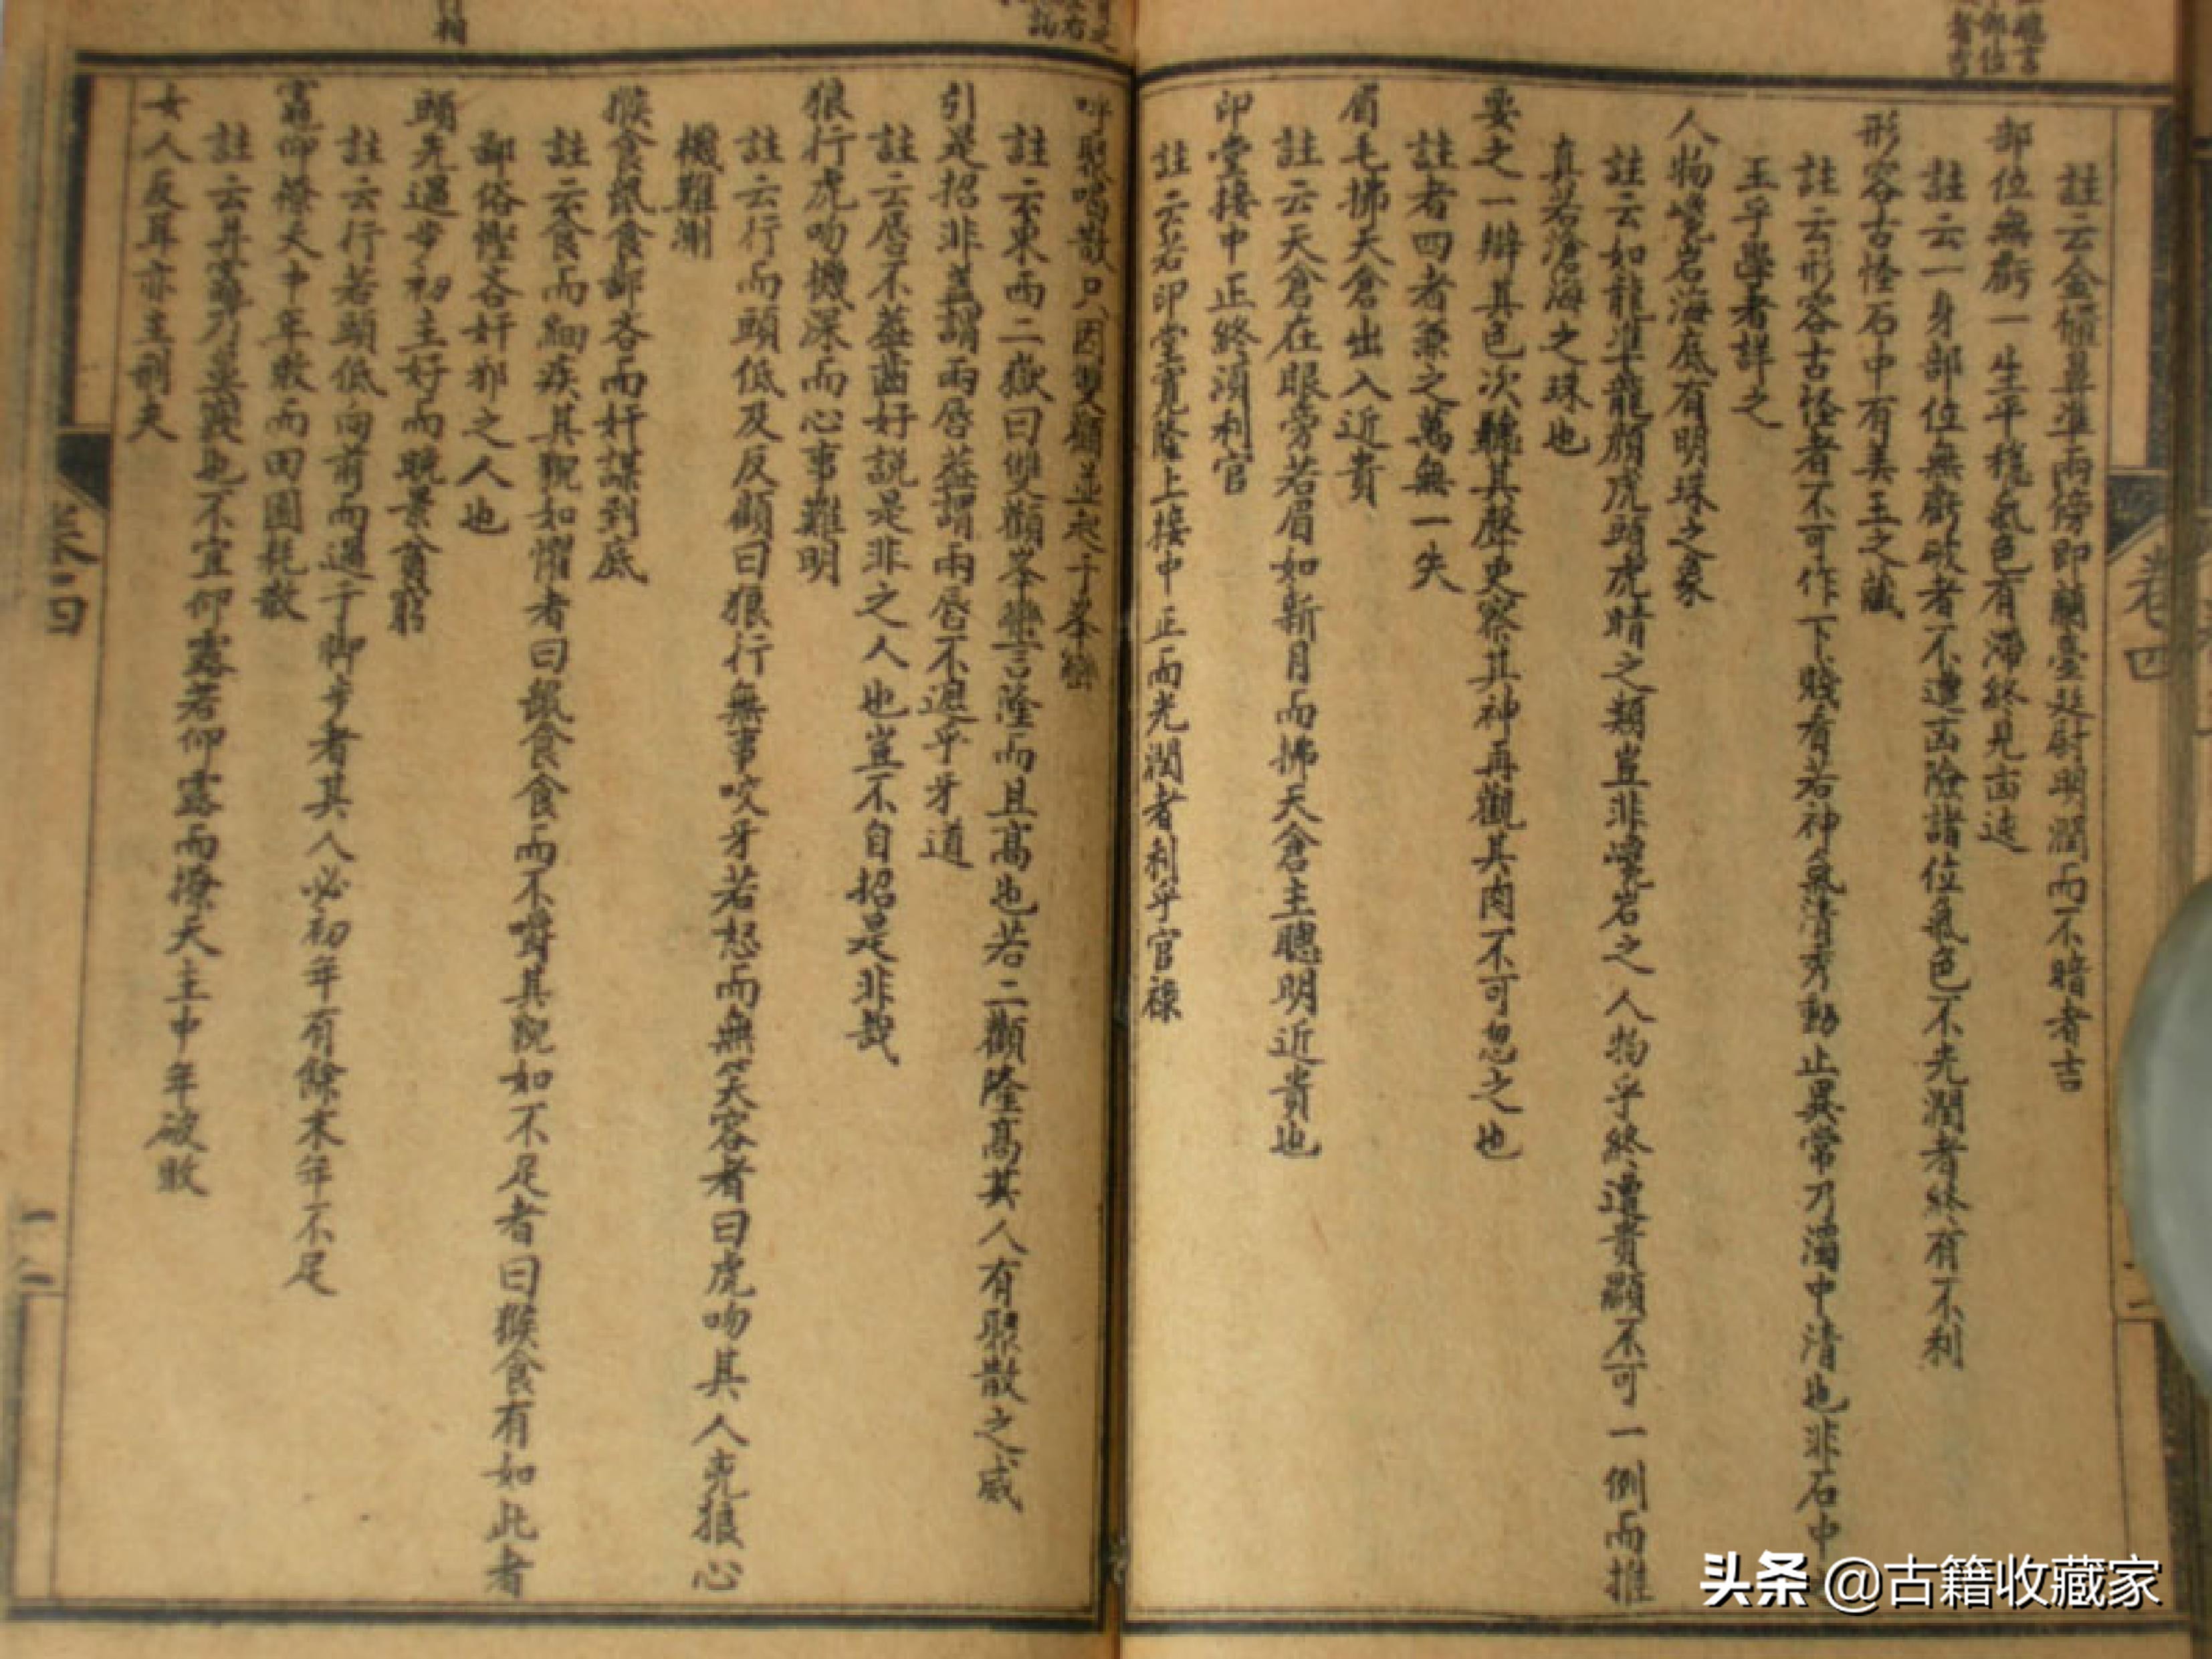 註云金櫃鼻準兩傍即蘭臺廷尉明潤而不暗者吉
部位無虧一生平穩氣色有滯終見凶迍
註云一身部位無虧破者不遭凶險諸位氣色不光潤者終有不利
形容古怪石中有美玉之藏
註云形容古怪者不可作下賤看若神氣清秀動止異常乃濁中清也非石中
玉乎學者詳之
人物巉岩海底有明珠之象
註云如龍準龍顏虎頭虎睛之類豈非巉岩之人物乎終遭貴顯不可一例而推
真若滄海之珠也
要之一辯其色次聽其聲更察其神再觀其肉不可忽之也
註者四者兼之萬無一失
眉毛拂天倉出入近貴
註云天倉在眼旁若眉如新月而拂天倉主聰明近貴也
印堂接中正終須利官
註云若印堂寬隆上接中正而光潤者利乎官祿
呼聚喝散只因雙顴並起于峯巒
註云東西二嶽曰雙顴峯巒言隆而且高也若二顴隆高其人有聚散之威
引是招非蓋謂兩唇不遮乎牙道
註云唇不蓋齒好說是非之人也豈不自招是非哉
狼行虎吻機深而心事難明
註云行而頭低及反顧曰狼行無事咬牙若怒而無笑容者曰虎吻其人兇狼心
機難測
猴食鼠食鄙吝而奸謀到底
註云食而細疾其貌如懼者曰鼠食食而不嚼其貌如不足者曰猴食有如此者
鄙俗慳吝奸邪之人也
頭先過步初主好而晚景貧窮
註云行若頭低向前而過于腳步者其人必初年有餘末年不足
竈仰撩天中年敗而田園耗散
註云井竈乃鼻竅也不宜仰露若仰露而撩天主中年破敗
女人反耳亦主刑夫
卷四
卷四
頭条 @古籍收藏家